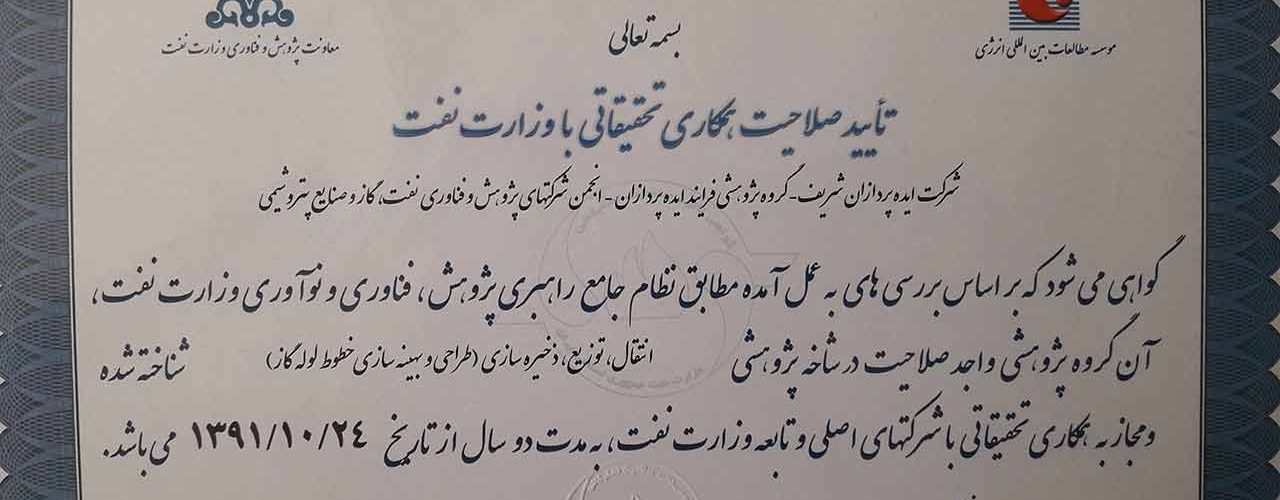 بسمه تعالی
موسسه مطالعات بین المللی انرژی
معاونت پژوهش و فناوری وزارت نفت
تأیید صلاحیت همکاری تحقیقاتی با وزارت نفت
شرکت ایده پردازان شریف-گروه پژوهشی فرایند ایده پردازان - انجمن شرکتهای پژوهش و فناوری نفت، گاز و صنایع پتروشیمی
گواهی می شود که بر اساس بررسی های به عمل آمده مطابق نظام جامع راهبری پژوهش، فناوری و نوآوری وزارت نفت،
آن گروه پژوهشی واجد صلاحیت در شاخه پژوهشی انتقال، توزیع، ذخیره سازی (طراحی و بهینه سازی خطوط لوله گاز) شناخته شده
و مجاز به همکاری تحقیقاتی با شرکتهای اصلی و تابعه وزارت نفت، به مدت دو سال از تاریخ ۱۳۹۱/۱۰/۲۴ می باشد.